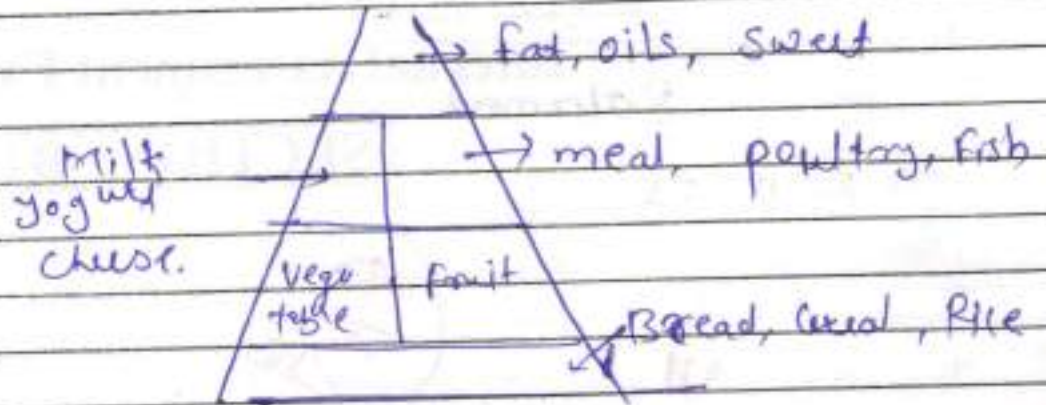 fat, oils, sweet
Milk
yogurt
cheese.
meal, poultry, Fish
Vege
table
fruit
Bread, Cereal, Rice